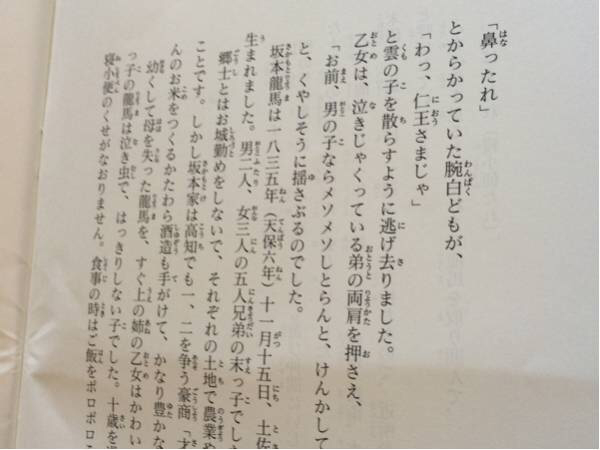 「鼻ったれ」
とからかっていた腕白どもが、
「わっ、仁王さまじゃ」
と雲の子を散らすように逃げ去りました。
乙女は、泣きじゃくっている弟の両肩を押さえ、
「お前、男の子ならメソメソしとらんと、けんかして
と、くやしそうに揺さぶるのでした。
坂本龍馬は一八三五年（天保六年）十一月十五日、土佐
生まれました。男二人、女三人の五人兄弟の末っ子でした
郷士とはお城勤めをしないで、それぞれの土地で農業や
ことです。しかし坂本家は高知でも一、二を争う豪商「才
んのお米をつくるかたわら酒造も手がけて、かなり豊かな
幼くして母を失った龍馬を、すぐ上の姉の乙女はかわい
っ子の龍馬は泣き虫で、はっきりしない子でした。十歳を
寝小便のくせがなおりません。食事の時はご飯をポロポロこ